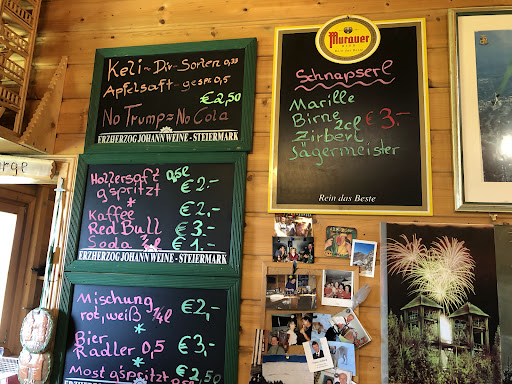 Keli~Div-Sorten 0,33
Apfelsaft-gespr. 0,5
€2,50
No Trump=No Cola
ERZHERZOG JOHANN WEINE - STEIERMARK
Hollersaft 0,5l
gspritzt €2.-
*
Kaffee €2.-
Red Bull €3.-
Soda €1.-
ERZHERZOG JOHANN WEINE - STEIERMARK
Mischung €2,-
rot, weiß 1/4l
*
Bier
Radler 0,5 €3,-
*
Most gspritzt €2,50
Murauer
BIER
Schnapserl
Marille
Birne 2cl €3.-
Zirberl
Jägermeister
Rein das Beste